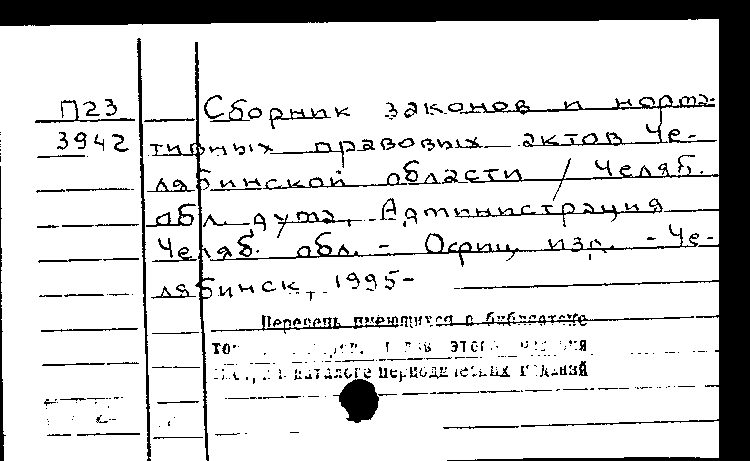 П23 Сборник законов и норма-
3942 тивных правовых актов Че-
лябинской области / Челяб.
обл. дума, Администрация
Челяб. обл. - Офиц. изд. - Че-
лябинск, 1995-
Перечень имеющихся в библиотеке
этого
в каталоге периодических изданий